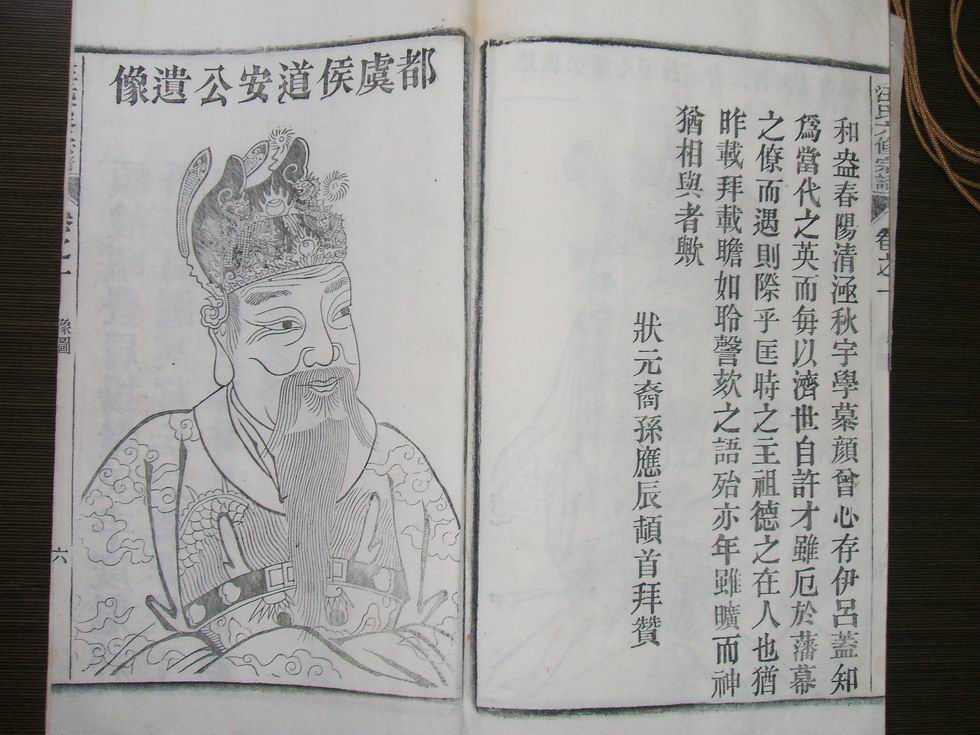 汪氏六修宗譜
卷之一
和盎春陽清涵秋宇學慕顏曾心存伊呂蓋知
爲當代之英而每以濟世自許才雖厄於藩幕
之僚而遇則際乎匡時之主祖德之在人也猶
昨載拜載瞻如聆謦欬之語殆亦年雖曠而神
猶相與者歟
狀元裔孫應辰頓首拜贊
都虞侯道安公遺像
卷之一
像圖
六